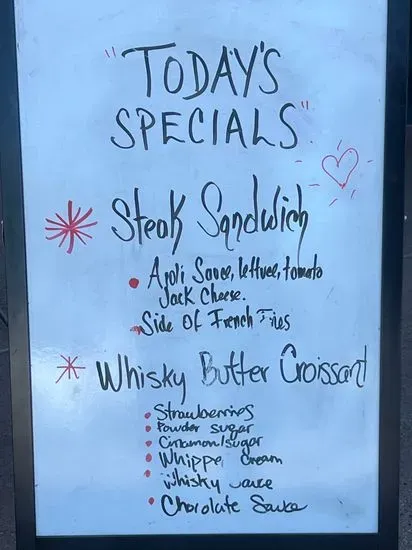 "TODAY'S
SPECIALS"
Steak Sandwich
Ajoli Sauce, lettuce, tomato
Jack Cheese.
Side Of French Fries
Whisky Butter Croissant
Strawberrings
Powder sugar
Cinnamon/sugar
Whippe Cream
Whisky sauce
Chorolate Sauce